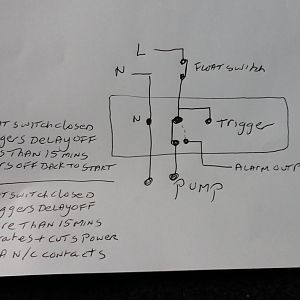 L
N
FLOAT SWITCH
N
TRIGGER
ALARM OUTP
PUMP
AT SWITCH CLOSED
GGERS DELAY OFF
S THAN 15 MINS
RS OFF BACK TO START
AT SWITCH CLOSED
GGERS DELAY OFF
RE THAN 15 MINS
RATES + CUTS POWER
A N/C CONTACTS